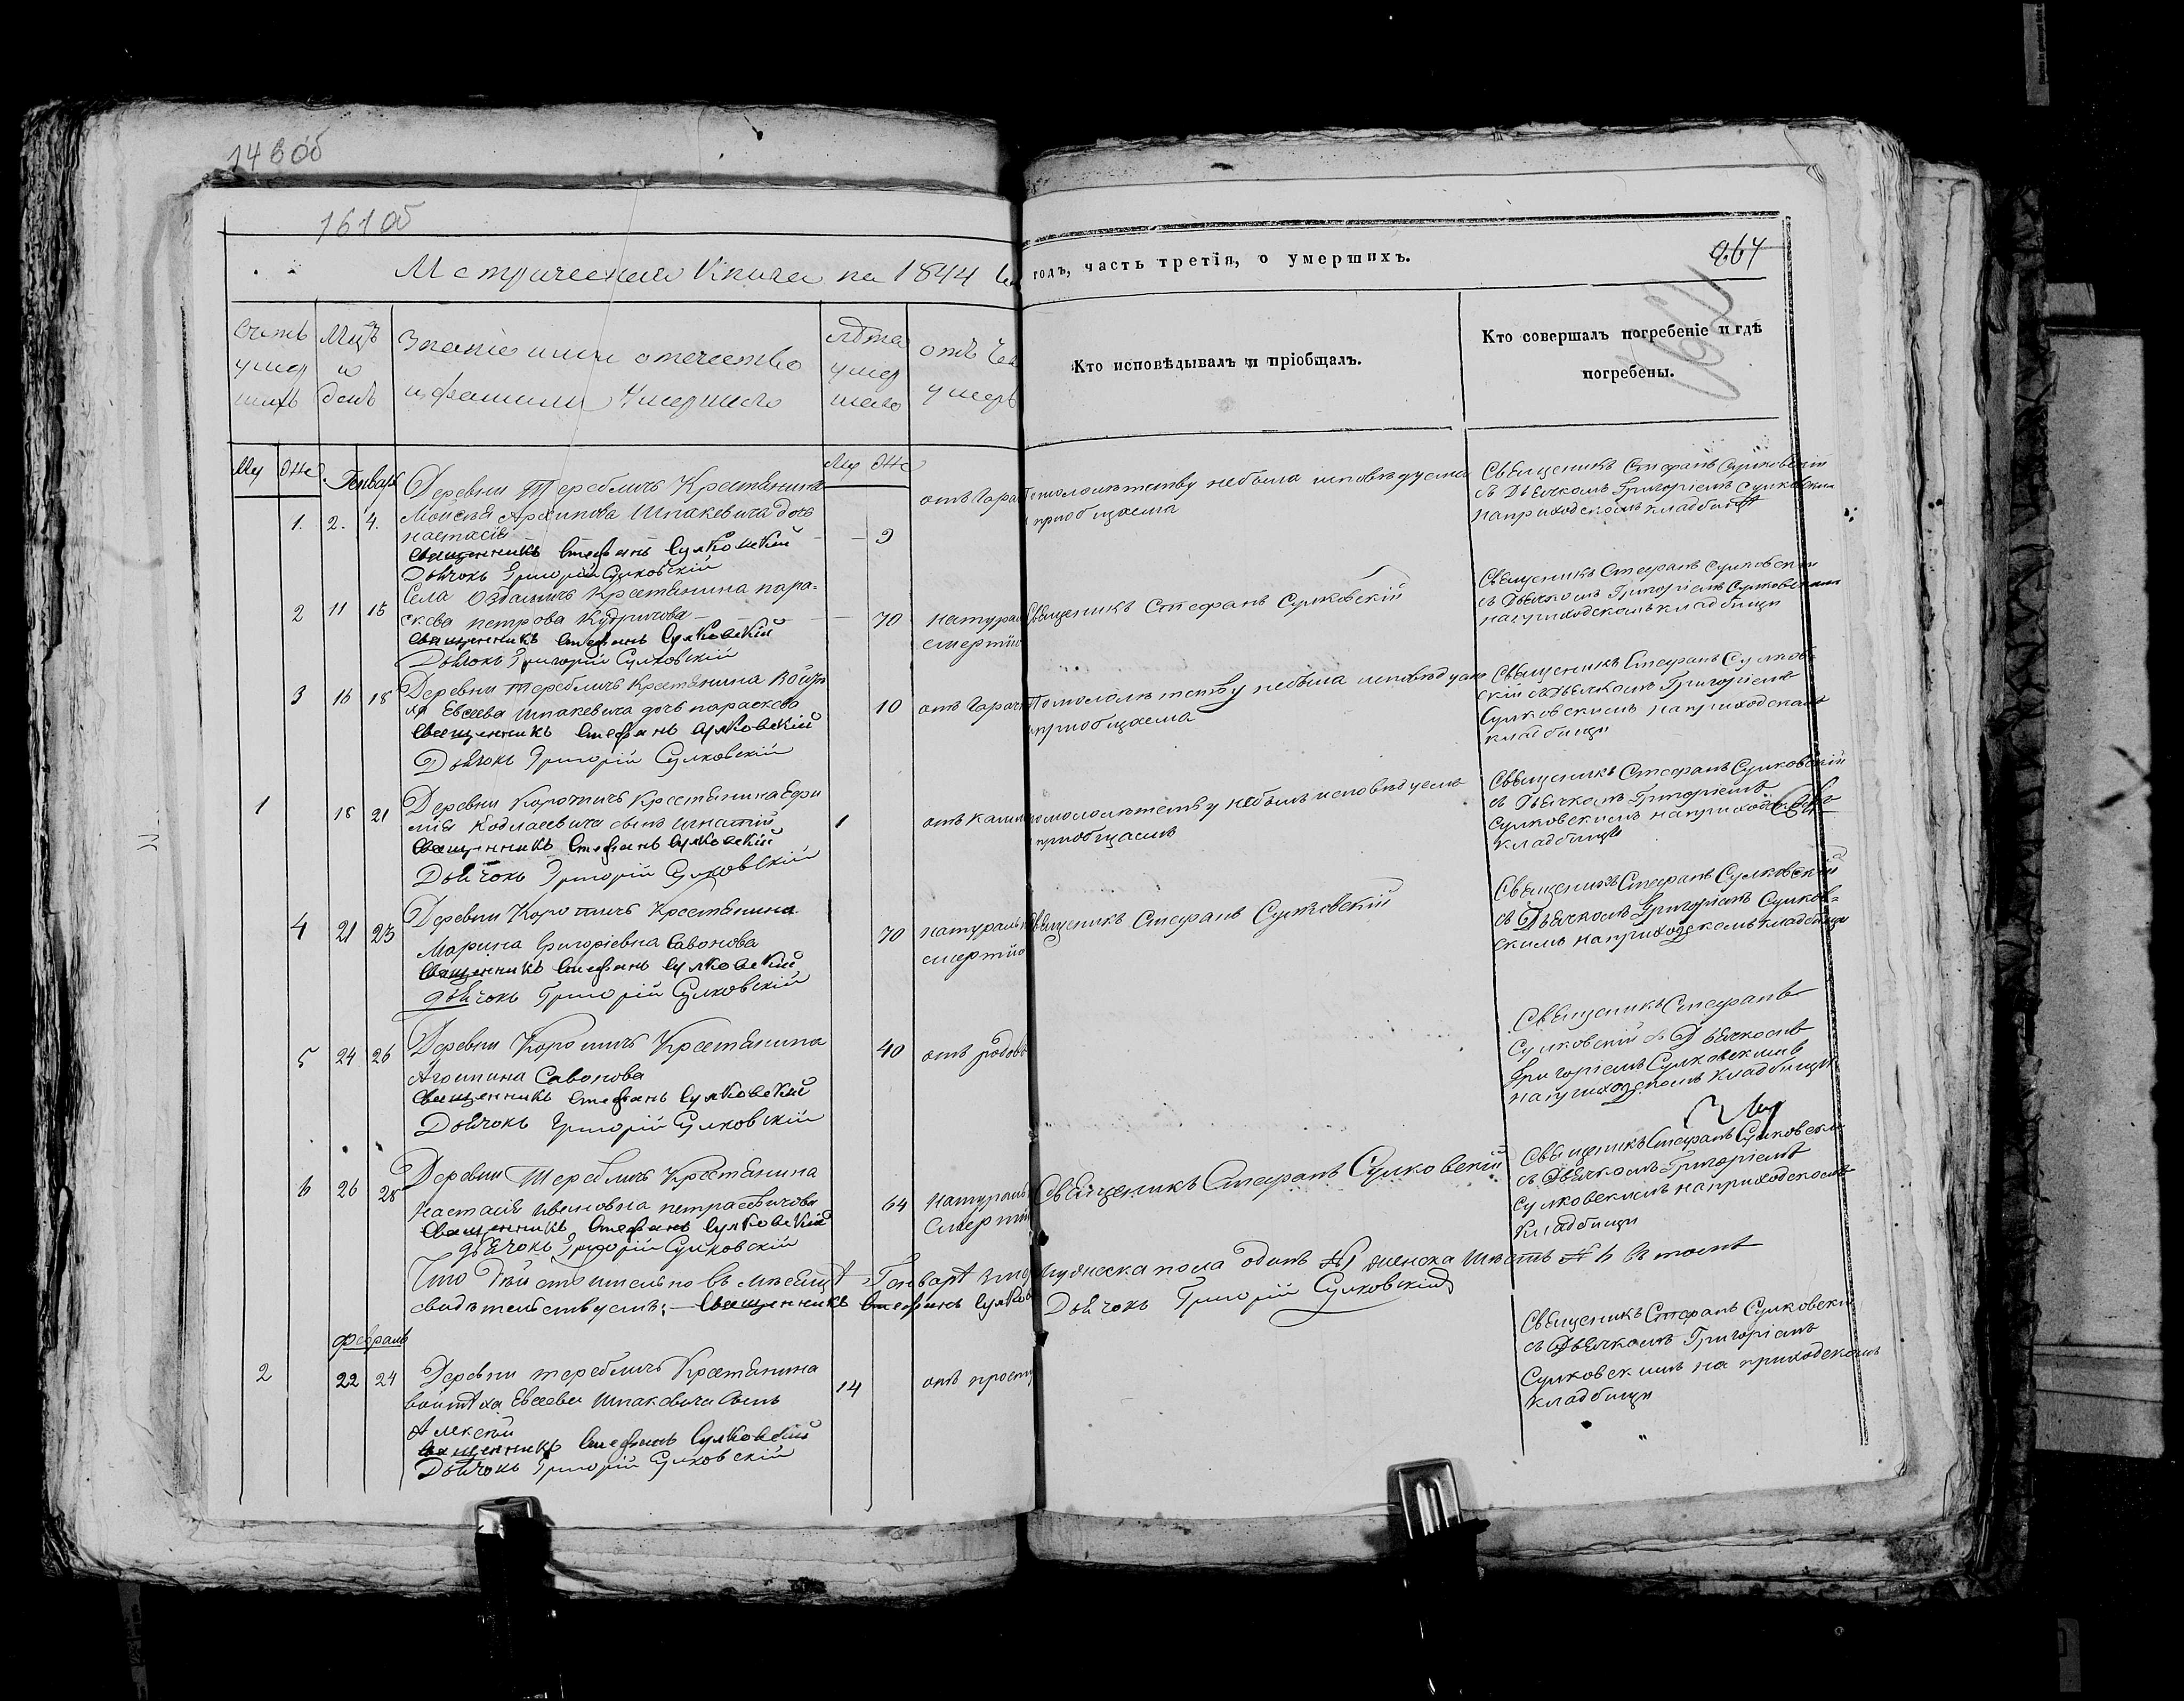 143об
161об
Метрическая книга на 1844
годъ, часть третія, о умершихъ.
264
162
Счетъ умер шихъ
Мцъ и день
Званіе имя отечество и фамилія Умершаго
лѣта умер шаго
отъ чего умеръ
Кто исповѣдывалъ и пріобщалъ.
Кто совершалъ погребеніе и гдѣ погребены.
Му Же
Генварь
Му Же
1. 2. 4.
Деревни Теребличъ Крестьянина
Моисея Архипова Шпакевича дочь
настасія
Священникъ Стефанъ Сулковскій
Дьячокъ Григорій Сулковскій
9
отъ
помололѣтству небыла исповѣдуема
и приобщаема
Священикъ Стефанъ Сулковскій
съ Дьячкомъ Григоріемъ Сулковскимъ
на приходскомъ кладбищѣ
2 11 15
Села Оздамичъ Крестьянина пара-
скева петрова Кудричова
Священникъ Стефанъ Сулковскій
Дьячокъ Григорій Сулковскій
70
натурал
смертію
Священикъ Стефанъ Сулковскій
Священикъ Стефанъ Сулковскій
съ Дьячкомъ Григоріемъ Сулковскимъ
на приходскомъ кладбищи
3 16 18
Деревни теребличъ Крестьянина Войтѣ
ха Евсеева Шпакевича дочь параскева
Священникъ Стефанъ Сулковскій
Дьячокъ Григорій Сулковскій
10
отъ Гарачк
Помололѣтству небыла исповѣдуема
и приобщаема
Священикъ Стефанъ Сулков-
скій съ Дьячкомъ Григоріемъ
Сулковскимъ на приходскомъ
кладбищи
1 18 21
Деревни Коротичъ Крестьянина Ефи
мія сынъ Игнатій
Священникъ Стефанъ Сулковскій
Дьячокъ Григорій Сулковскій
1
отъ
помололѣтству небылъ исповѣдуемъ
и приобщаемъ
Священикъ Стефанъ Сулковскій
съ Дьячкомъ Григоріемъ
Сулковскимъ на приходскомъ
кладбищи
4 21 23
Деревни Коротичъ Крестьянина
Марина Григоріевна Савонова
Священникъ Стефанъ Сулковскій
дьячокъ Григорій Сулковскій
70
натуральн
смертію
Священикъ Стефанъ Сулковскій
Священикъ Стефанъ Сулковскій
съ Дьячкомъ Григоріемъ Сулков-
скимъ на приходскомъ кладбищи
5 24 26
Деревни Коротичъ Крестьянина
Агрипина Савонова
Священникъ Стефанъ Сулковскій
Дьячокъ Григорій Сулковскій
40
отъ родовъ
Священикъ Стефанъ
Сулковскій съ Дьячкомъ
Григоріемъ Сулковскимъ
на приходскомъ кладбищи
6 26 28
Деревни Теребличъ Крестьянина
Настасія Ивановна петрасевичова
Священникъ Стефанъ Сулковскій
дьячокъ Григорій Сулковскій
64
Натураль
Смертію
Священикъ Стефанъ Сулковскій
Священикъ Стефанъ Сулковскій
съ Дьячкомъ Григоріемъ
Сулковскимъ на приходскомъ
Кладбищи
Что Дѣйствительно въ мѣсяцѣ Генварѣ мужеска пола одинъ №1 женска шесть № 6 въ томъ
свидѣтельствуемъ: Священникъ Стефанъ Сулков Дьячокъ Григорій Сулковскій
Февраль
2 22 24
Деревни теребличъ Крестьянина
войтѣха Евсеева Шпаковича сынъ
Алексѣй
Священникъ Стефанъ Сулковскій
Дьячокъ Григорій Сулковскій
14
отъ просту
Священикъ Стефанъ Сулковскій
съ Дьячкомъ Григоріемъ
Сулковскимъ на приходскомъ
кладбищи